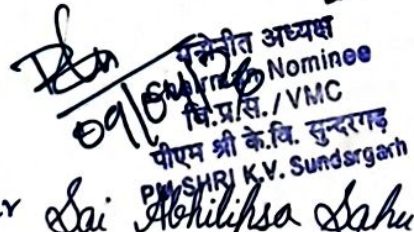 मनोनीत अध्यक्ष
Chairman Nominee
वि.प्र.स. / VMC
पीएम श्री के.वि. सुन्दरगढ़
PM SHRI K.V. Sundargarh
Sai Abhilipsa Sahu